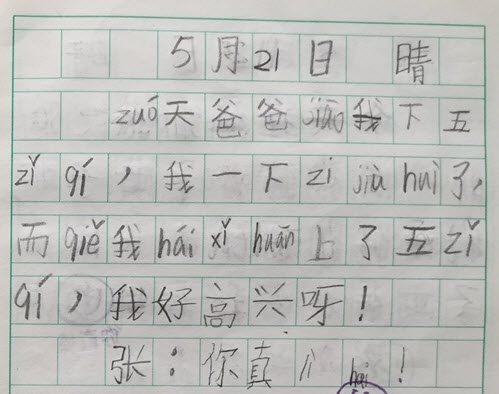 5月21日 晴
zuó天爸爸jiāo我下五
zǐ qí，我一下zi jiù huì了，
而qiě我hái xǐ huān上了五zǐ
qí，我好高兴呀！
张：你真 hai！